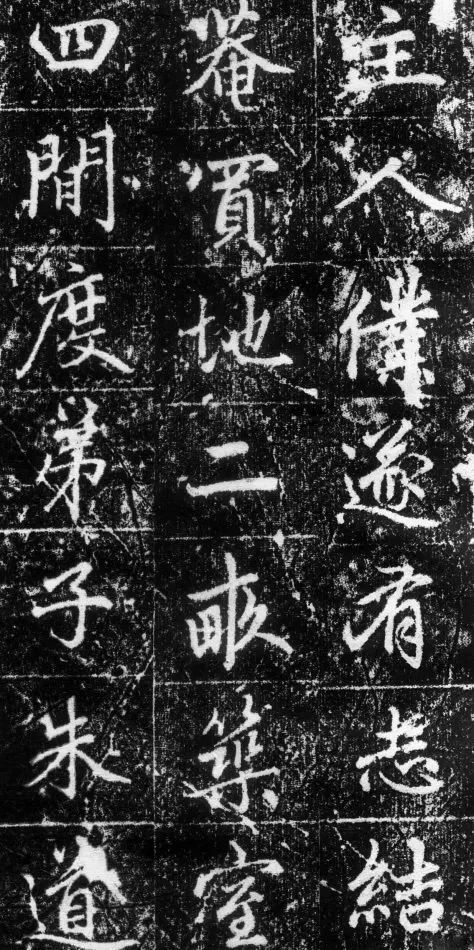 主人僕遂有志結
菴買地二畝築室
四間度弟子朱道